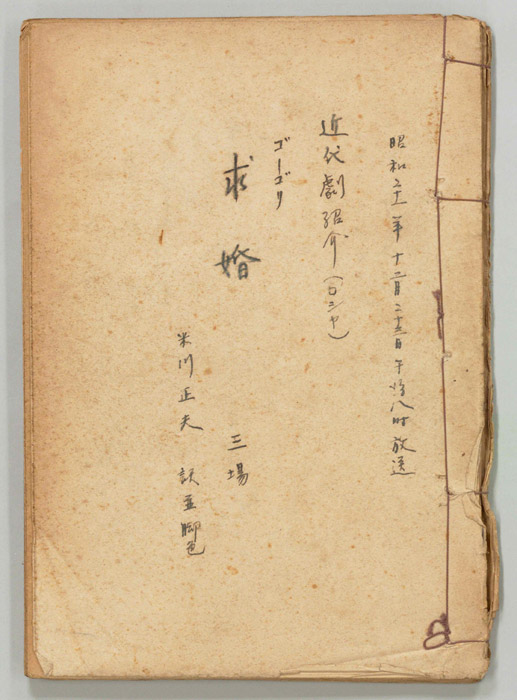 昭和二十一年十二月二十三日午后八時放送
近代劇紹介(ロシヤ)
ゴーゴリ
求婚
三場
米川正夫 訳並脚色